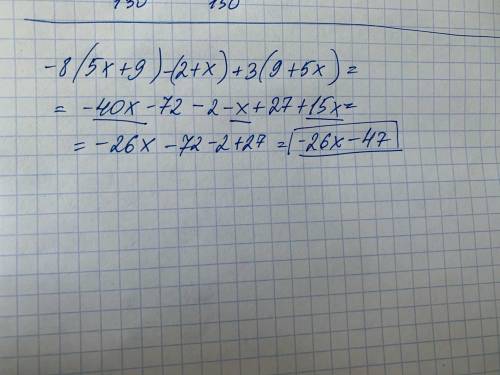 130 130
-8(5x+9)-(2+x)+3(9+5x)=
= -40x-72-2-x+27+15x=
= -26x-72-2+27=-26x-47